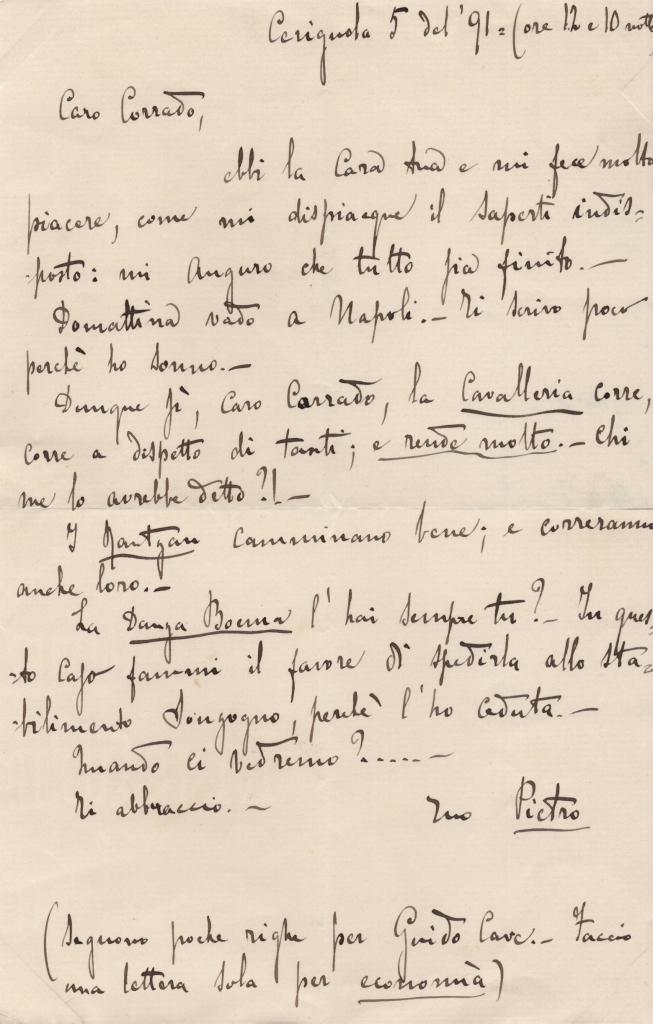 Cerignola 5 del '91 = (ore 12 e 10 notte
Caro Corrado,
ebbi la Cara tua e mi fece molto
piacere, come mi dispiacque il saperti indis=
=posto: mi auguro che tutto sia finito.—
Domattina vado a Napoli.— Ti scrivo poco
perchè ho sonno.—
Dunque sì, caro Corrado, la Cavalleria corre,
corre a dispetto di tanti; e rende molto.— Chi
me lo avrebbe detto?!—
I Rantzau camminano bene; e correranno
anche loro.—
La Danza Boema l'hai sempre tu?— In ques=
=to caso fammi il favore di spedirla allo sta=
=bilimento Sonzogno, perchè l'ho ceduta.—
Quando ci vedremo?.....—
Ti abbraccio.— Tuo Pietro
(Seguono poche righe per Guido Cave.— Faccio
una lettera sola per economia)